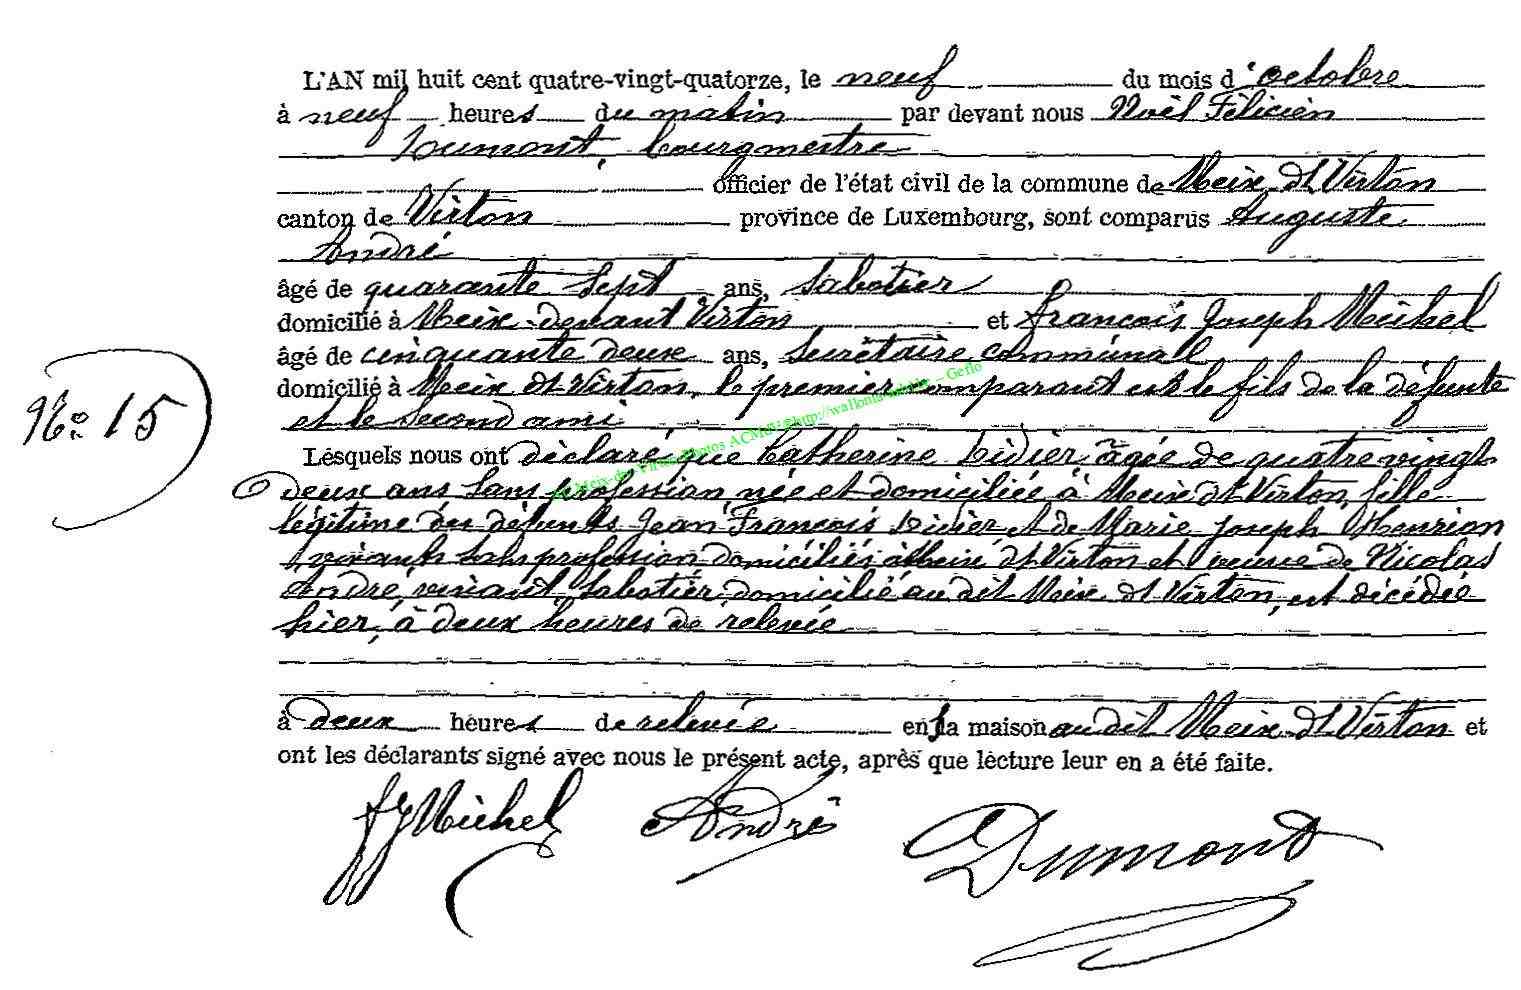 L'AN mil huit cent quatre-vingt-quatorze, le neuf du mois d'octobre
à neuf heures du matin par devant nous Noël Félicien
Dumont, bourgmestre
officier de l'état civil de la commune de Meix dt Virton
canton de Virton province de Luxembourg, sont comparus Auguste
André
âgé de quarante sept ans, sabotier
domicilié à Meix-devant Virton et François Joseph Michel
âgé de cinquante deux ans, secrétaire communal
domicilié à Meix dt Virton, le premier comparant est le fils de la défunte
et le second ami
No 15
Lesquels nous ont déclaré que Catherine Didier âgée de quatre vingt
deux ans sans profession née et domiciliée à Meix dt Virton, fille
légitime des défunts Jean François Didier et de Marie Joseph Henrion
vivants sans profession domiciliés à Meix dt Virton et veuve de Nicolas
André, vivant sabotier domicilié au dit Meix dt Virton, est décédée
hier, à deux heures de relevée
à deux heures de relevée en la maison au dit Meix dt Virton et
ont les déclarants signé avec nous le présent acte, après que lecture leur en a été faite.
fJ Michel André Dumont